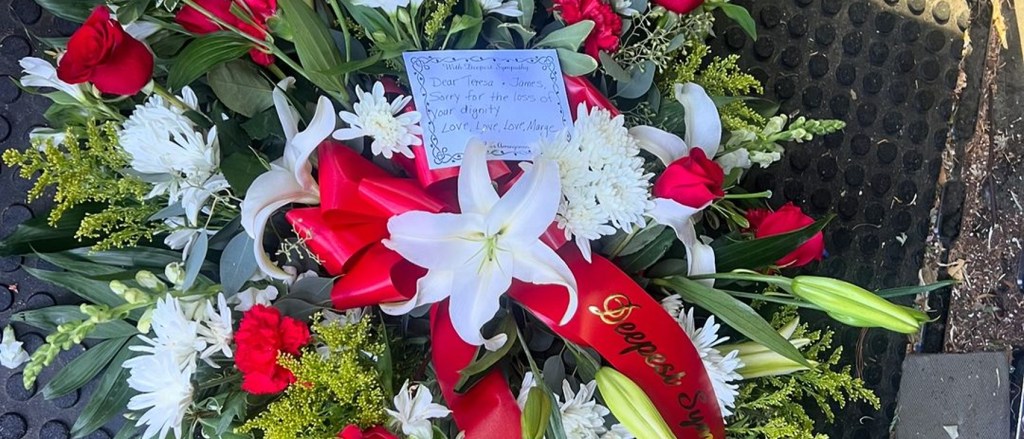 With Deepest Sympathy
Dear Teresa + James,
Sorry for the loss of
your dignity
LOVE, Love, Love, Marge
Deepest Sym